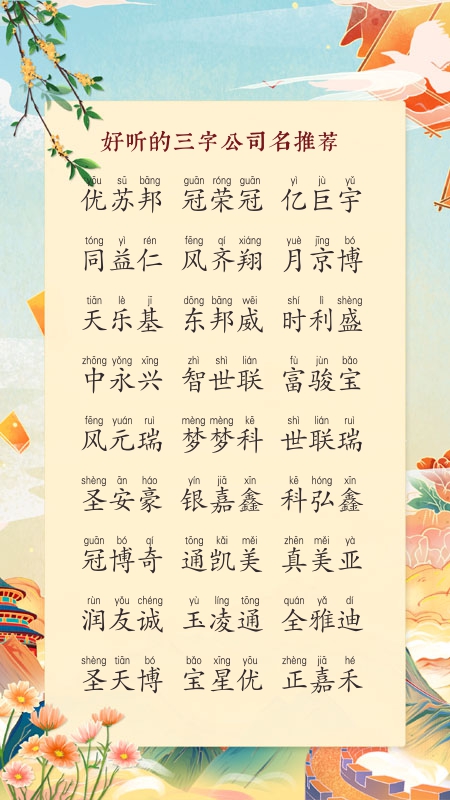 好听的三字公司名推荐
yōu sū bāng guān róng guān yì jù yǔ
优苏邦 冠荣冠 亿巨宇
tóng yì rén fēng qí xiáng yuè jīng bó
同益仁 风齐翔 月京博
tiān lè jī dōng bāng wēi shí lì shèng
天乐基 东邦威 时利盛
zhōng yǒng xīng zhì shì lián fù jùn bǎo
中永兴 智世联 富骏宝
fēng yuán ruì mèng mèng kē shì lián ruì
风元瑞 梦梦科 世联瑞
shèng ān háo yín jiā xīn kē hóng xīn
圣安豪 银嘉鑫 科弘鑫
guān bó qí tōng kǎi měi zhēn měi yà
冠博奇 通凯美 真美亚
rùn yǒu chéng yù líng tōng quán yǎ dí
润友诚 玉凌通 全雅迪
shèng tiān bó bǎo xīng yōu zhèng jiā hé
圣天博 宝星优 正嘉禾